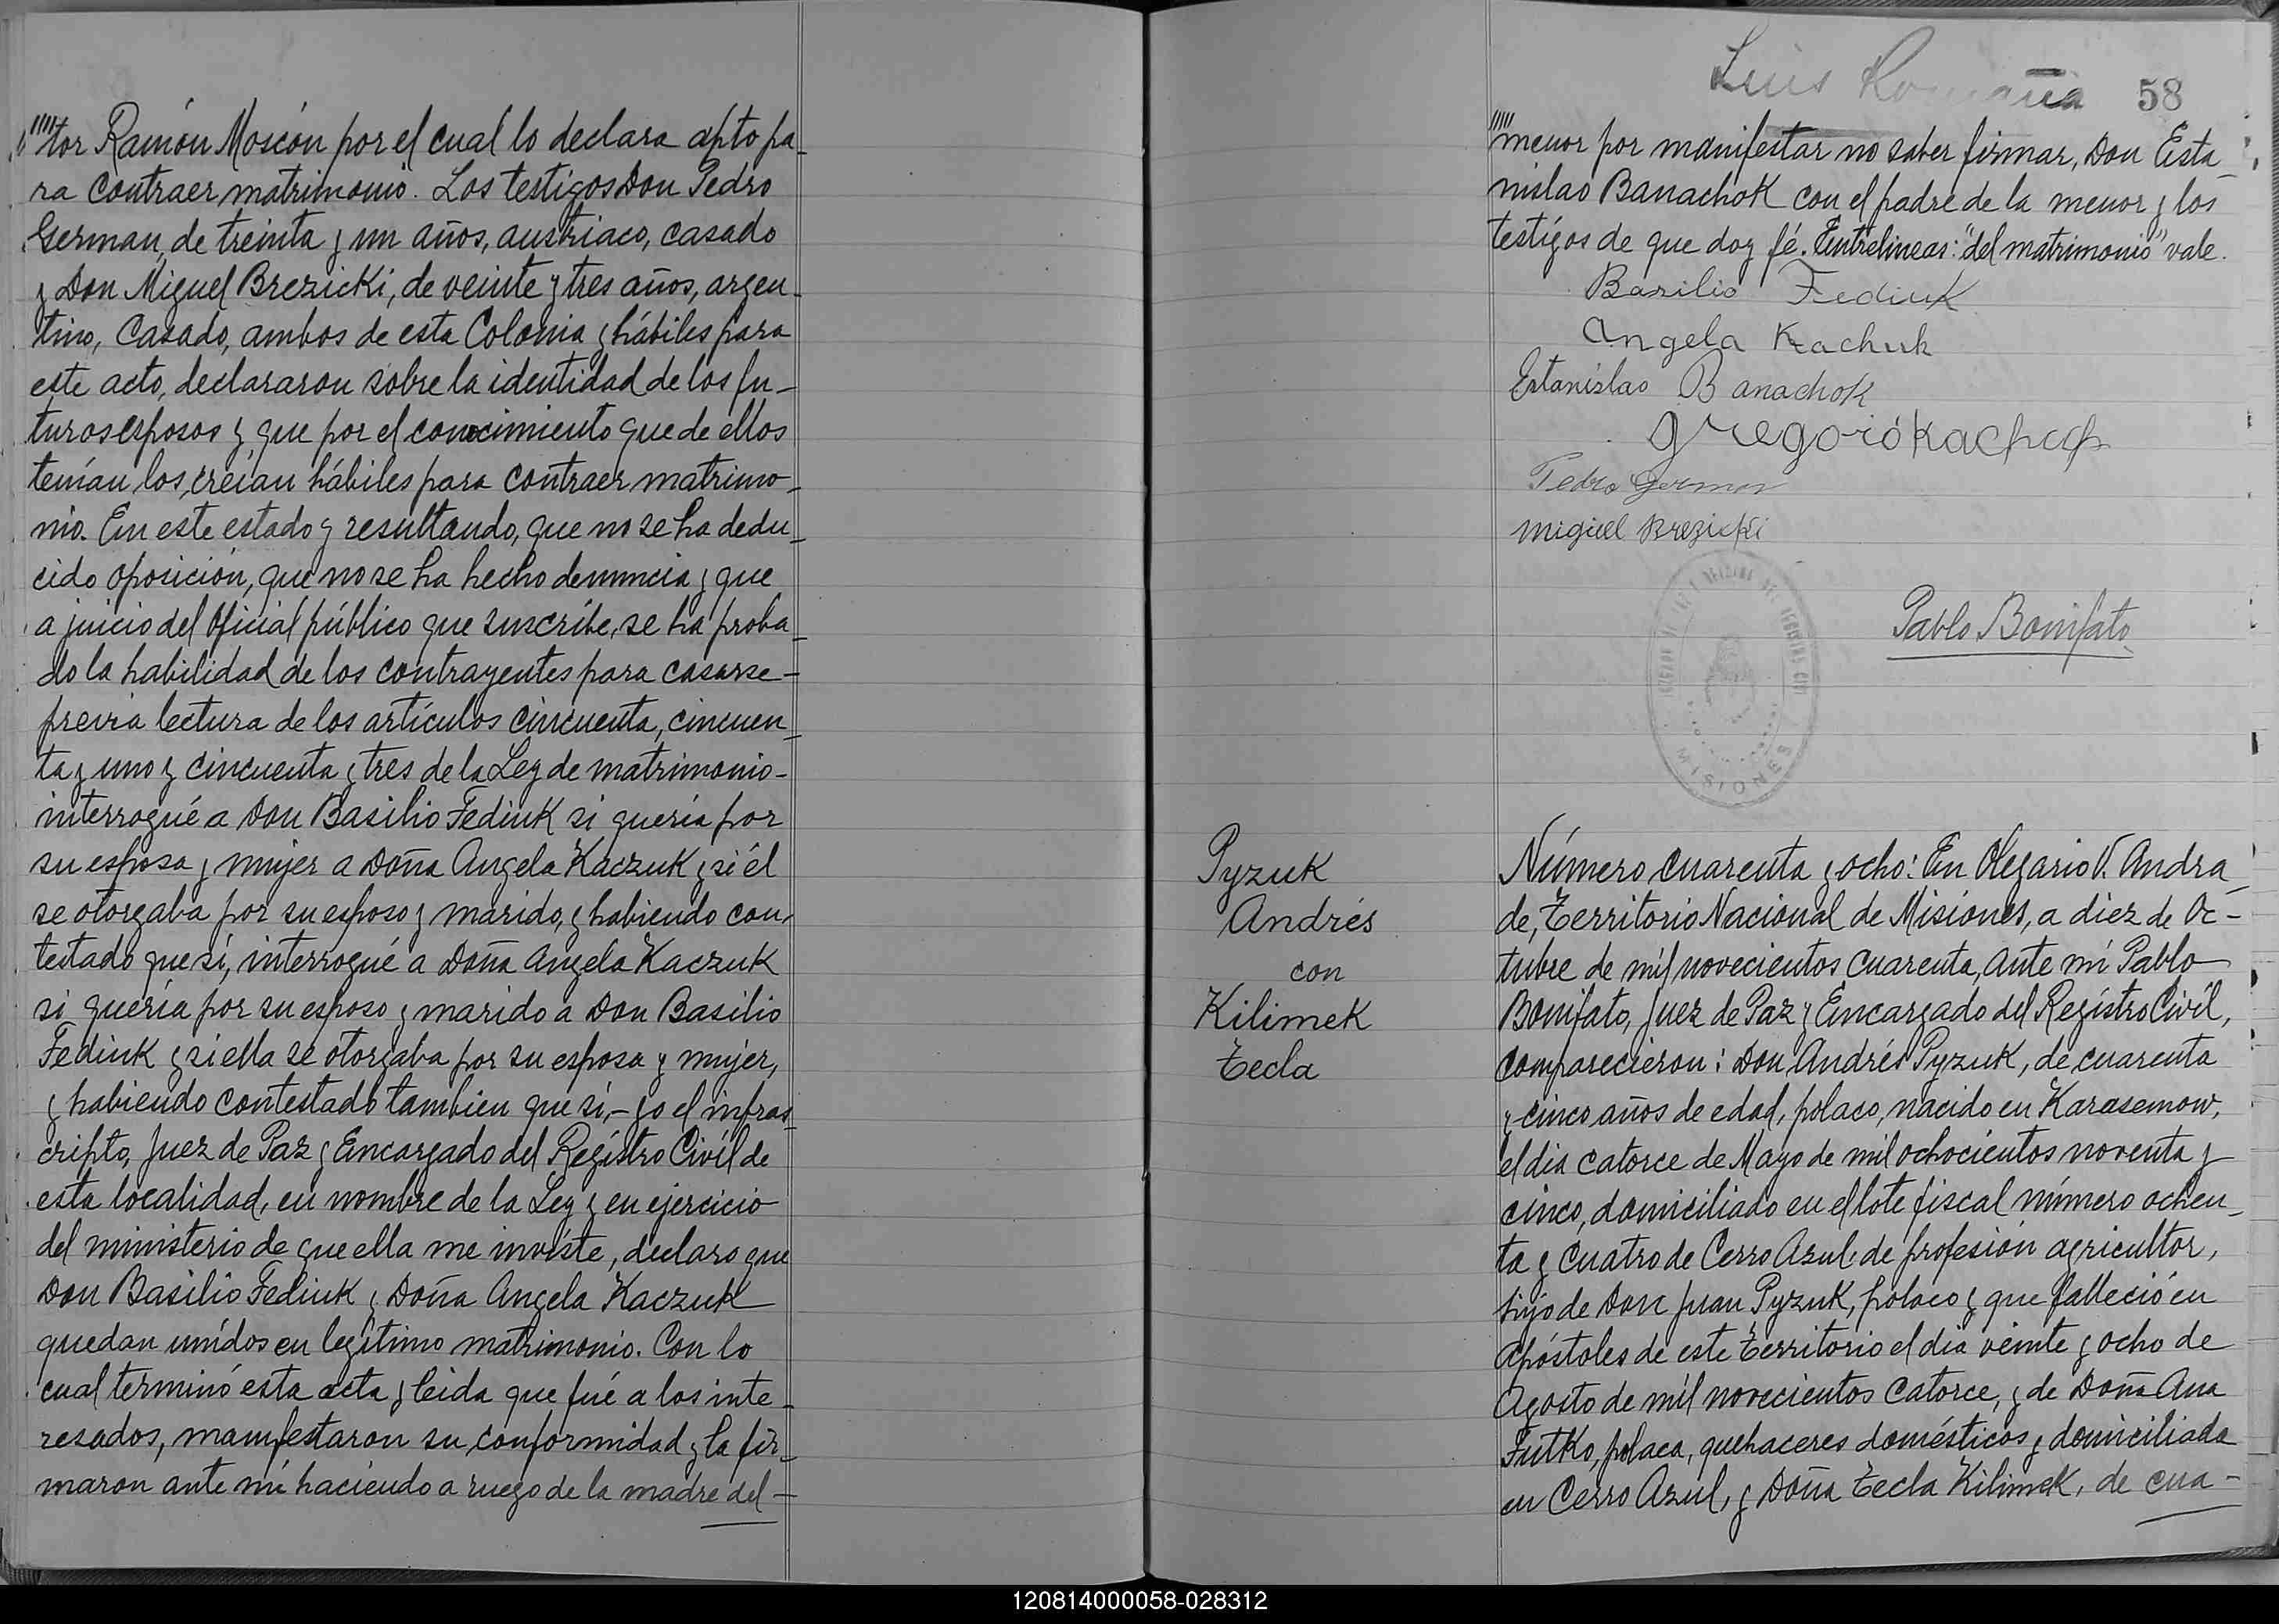 ""tor Ramón Moscón por el cual lo declara apto pa-
ra contraer matrimonio. Los testigos Don Pedro
German, de treinta y un años, austriaco, casado
y Don Miguel Brezicki, de veinte y tres años, argen-
tino, casado, ambos de esta Colonia y hábiles para
este acto, declararon sobre la identidad de los fu-
turos esposos y que por el conocimiento que de ellos
tenían los creían hábiles para contraer matrimo-
nio. En este estado y resultando, que no se ha dedu-
cido oposición, que no se ha hecho denuncia y que
a juicio del Oficial público que suscribe, se ha proba-
do la habilidad de los contrayentes para casarse-
previa lectura de los artículos cincuenta, cincuen-
ta y uno y cincuenta y tres de la Ley de matrimonio-
interrogué a Don Basilio Fediuk si quería por
su esposa y mujer a Doña Angela Kaczuk y si él
se otorgaba por su esposo y marido, y habiendo con-
testado que si, interrogué a Doña Angela Kaczuk
si quería por su esposo y marido a Don Basilio
Fediuk y si ella se otorgaba por su esposa y mujer,
y habiendo contestado tambien que si,- yo el infras-
cripto, Juez de Paz y Encargado del Registro Civíl de
esta localidad, en nombre de la Ley y en ejercicio
del ministerio de que ella me inviste, declaro que
Don Basilio Fediuk y Doña Angela Kaczuk
quedan unidos en legítimo matrimonio. Con lo
cual terminó esta acta y leida que fué a los inte-
resados, manifestaron su conformidad y la fir-
maron ante mi haciendo a ruego de la madre del-
Luis 58
""menor por manifestar no saber firmar, Don Esta-
nislao Banachok con el padre de la menor y los
testigos de que doy fé. Entrelineas: "del matrimonio" vale.
Basilio Fediuk
Angela Kachuk
Estanislao Banachok
Gregorio
Pedro German
Miguel Brezicki
MISIONES
Pablo Bonifato
Pyzuk
Andrés
con
Kilimek
Tecla
Número cuarenta y ocho: En Olegario V. Andra-
de, Territorio Nacional de Misiones, a diez de Oc-
tubre de mil novecientos cuarenta, ante mi Pablo
Bonifato, Juez de Paz y Encargado del Registro Civíl,
comparecieron: Don Andrés Pyzuk, de cuarenta
y cinco años de edad, polaco, nacido en Karasemow,
el dia catorce de Mayo de mil ochocientos noventa y
cinco, domiciliado en el lote fiscal número ochen-
ta y cuatro de Cerro Azul, de profesión agricultor,
hijo de Don Juan Pyzuk, polaco y que falleció en
Apóstoles de este Territorio el dia veinte y ocho de
Agosto de mil novecientos catorce, y de Doña Ana
Futko, polaca, quehaceres domésticos y domiciliada
en Cerro Azul, y Doña Tecla Kilimek, de cua-
120814000058-028312